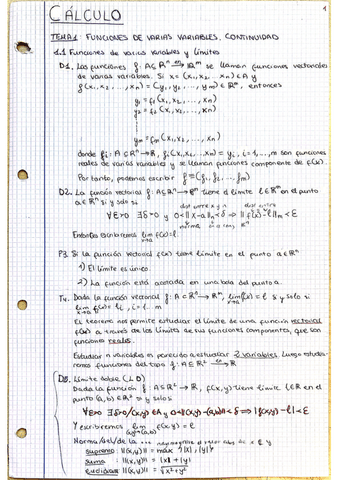 CÁLCULO
1
TEMA1: FUNCIONES DE VARIAS VARIABLES. CONTINUIDAD
1.1 Funciones de varias variables y límites
D1. Las funciones f: A⊆ℝⁿ → ℝᵐ se llaman funciones vectoriales
de varias variables. Si x = (x₁, x₂, ..., xₙ) ∈ A y
f(x₁, x₂, ..., xₙ) = (y₁, y₂, ..., yₘ) ∈ ℝᵐ, entonces
y₁ = f₁(x₁, x₂, ..., xₙ)
y₂ = f₂(x₁, x₂, ..., xₙ)
⋮
yₘ = fₘ(x₁, x₂, ..., xₙ)
donde fᵢ: A⊆ℝⁿ→ℝ, fᵢ(x₁, x₂, ..., xₙ) = yᵢ, i=1,...,m son funciones
reales de varias variables y se llaman funciones componente de f(x).
Por tanto, podemos escribir f = (f₁, f₂, ..., fₘ)
D2. La función vectorial f: A⊆ℝⁿ→ℝᵐ tiene el límite l∈ℝᵐ en el punto
a∈ℝⁿ si y solo si
∀ε>0 ∃δ>0 y 0<‖x-a‖ₙ<δ ⇒ ‖f(x)-l‖ₘ<ε
Entonces escribiremos lim x→a f(x)=l.
P3. Si la función vectorial f(x) tiene límite en el punto a∈ℝⁿ
1) El límite es único.
2) La función está acotada en una bola del punto a.
T4. Dada la función vectorial f: A⊂ℝⁿ → ℝᵐ, lim x→a f(x) = l si y solo si
lim x→a fᵢ(x) = lᵢ, i=1...m
El teorema nos permite estudiar el límite de una función vectorial
f(x) a través de los límites de sus funciones componentes, que son
funciones reales.
Estudiar n variables es parecido a estudiar 2 variables, luego estudia-
remos funciones del tipo f: A⊆ℝ² → ℝ
D5. Límite doble (L.D)
Dada la función f: A⊆ℝ² → ℝ, f(x,y) tiene límite l∈ℝ en el
punto (a,b)∈ℝ² si y solo si
∀ε>0 ∃δ>0 / (x,y)∈A y 0<‖(x,y)-(a,b)‖<δ ⇒ |f(x,y)-l|<ε
Y escribiremos lim (x,y)→(a,b) f(x,y) = l
supremo: ‖(x,y)‖ = máx {|x|, |y|}
suma: ‖(x,y)‖ = |x| + |y|
euclídea: ‖(x,y)‖ = √x²+y²